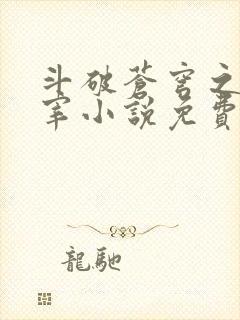 斗破蒼穹之
宰小說免費
龍馳